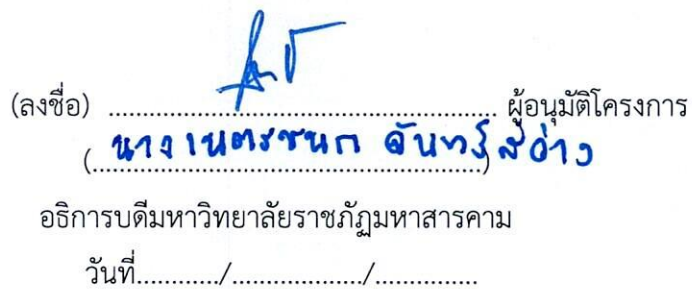 (ลงชื่อ) ................................................ ผู้อนุมัติโครงการ
(นางเนตรชนก จันทร์สว่าง)
อธิการบดีมหาวิทยาลัยราชภัฏมหาสารคาม
วันที่............/..................../...............